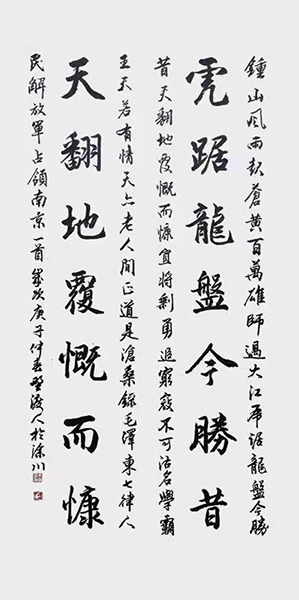 鍾山风雨起蒼黄百萬雄師過大江虎踞龍盤今勝
虎踞龍盤今勝昔
昔天翻地覆慨而慷宜將剩勇追窮寇不可沽名學霸
王天若有情天亦老人間正道是滄桑錄毛澤東七律人
天翻地覆慨而慷
民解放軍占領南京一首歲次庚子仲春野渡人於川